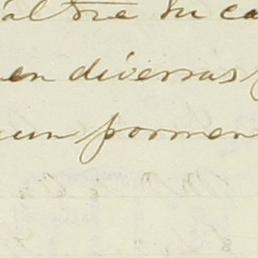 altre su ca
en diversas
un pormen